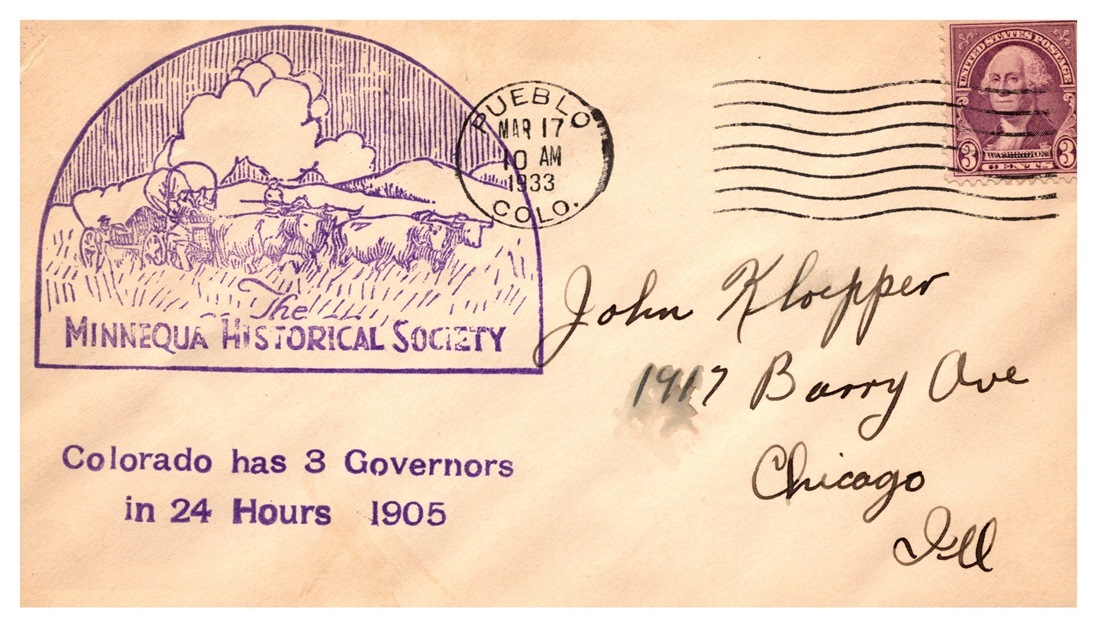 The
MINNEQUA HISTORICAL SOCIETY
Colorado has 3 Governors
in 24 Hours 1905
PUEBLO
MAR 17
10 AM
1933
COLO.
UNITED STATES POSTAGE
3 WASHINGTON 3
CENTS
John Kloepper
1917 Barry Ave
Chicago
Ill